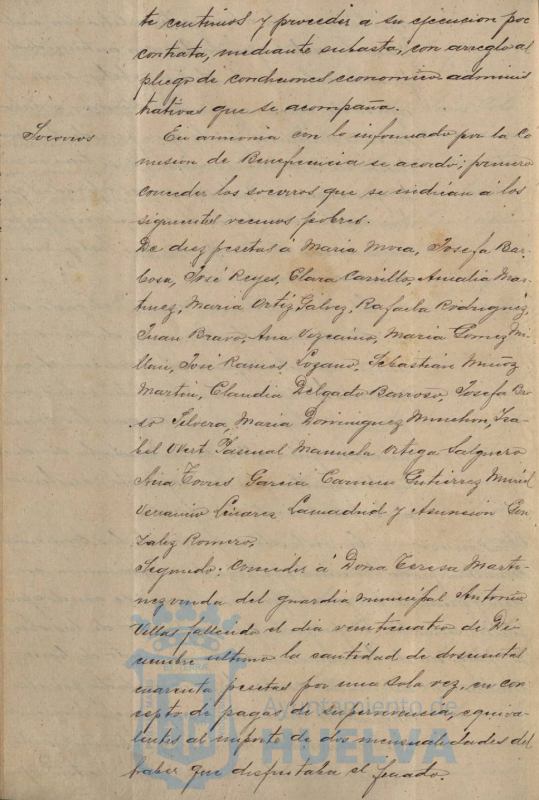 te centimos y proceder á su ejecucion por
contrata, mediante subasta, con arreglo al
pliego de condiciones economico adminis
trativas que se acompaña.
Socorros
En armonia con lo informado por la Co
mision de Beneficencia se acordó: primero
conceder los socorros que se indican á los
siguientes vecinos pobres.
De diez pesetas á Maria Mora, Josefa Bar-
bosa, José Reyes, Clara Carrillo, Amalia Mar-
tinez, Maria Ortiz Galvez, Rafaela Rodriguez,
Juan Bravo, Ana Vizcaino, Maria Gomez Mi
llan, José Ramos Lozano, Sebastián Muñoz
Martin, Claudia Delgado Barroso, Josefa
Silvera, Maria Dominguez Isa-
bel Pascual Manuela Ortega Salguero
Ana Torres Garcia Carmen Gutierrez
Linares Lamadrid y Asuncion Gon
zalez Romero.
Segundo: Conceder á Doña Teresa Marti-
nez viuda del guardia municipal Antonio
Villas fallecido el dia veinticuatro de Di
ciembre ultimo la cantidad de doscientas
cuarenta pesetas por una sola vez, en con
cepto de pagas de supervivencia, equiva-
lentes al importe de dos mensualidades del
haber que disfrutaba el finado.
Ayuntamiento de
HUELVA